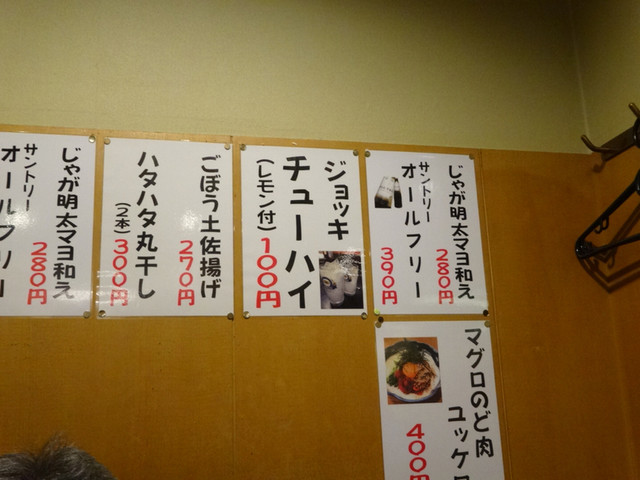 じゃが明太マヨ和え
280円
サントリー
オールフリー
390円
ジョッキ
チューハイ
(レモン付)
100円
ごぼう土佐揚げ
270円
ハタハタ丸干し
(2本)
300円
じゃが明太マヨ和え
280円
サントリー
オールフリー
マグロのど肉
ユッケ
400円